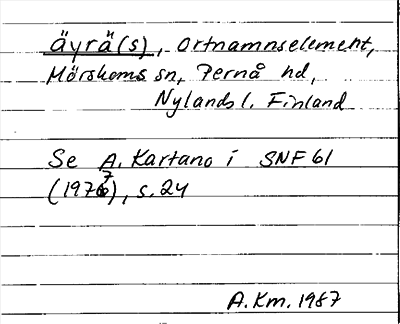 äyrä(s), Ortnamnselement,
Mörskoms sn, Pernå hd,
Nylands l. Finland
Se A. Kartano i SNF 61
(1977), s. 24
A.Km. 1987